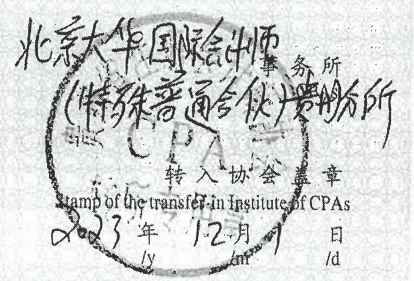 北京大华国际会计师事务所
(特殊普通合伙)贵州分所
CPA
转入协会盖章
Stamp of the transfer-in Institute of CPAs
2023 年 12 月 日
/y /m /d